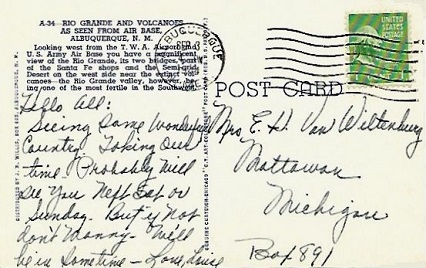 A-34 RIO GRANDE AND VOLCANOES
AS SEEN FROM AIR BASE,
ALBUQUERQUE, N. M.
Looking west from the T. W. A. Airport and
U. S. Army Air Base you have a magnificent
view of the Rio Grande, its two bridges, part
of the Santa Fe shops and the Semi-arid
Desert on the west side near the extinct vol-
canoes—the Rio Grande valley, however, be-
ing one of the most fertile in the Southwest.
ALBUQUERQUE
UNITED STATES
POSTAGE
POST CARD
Hello All:
Seeing some wonderful
Country. Taking our
time. Probably will
see you next Sat or
Sunday. But if not
don't worry. We'll
be in sometime – Love, Louise
Mrs E. H. Van Wiltenburg
Mattawan
Michigan
Box 891